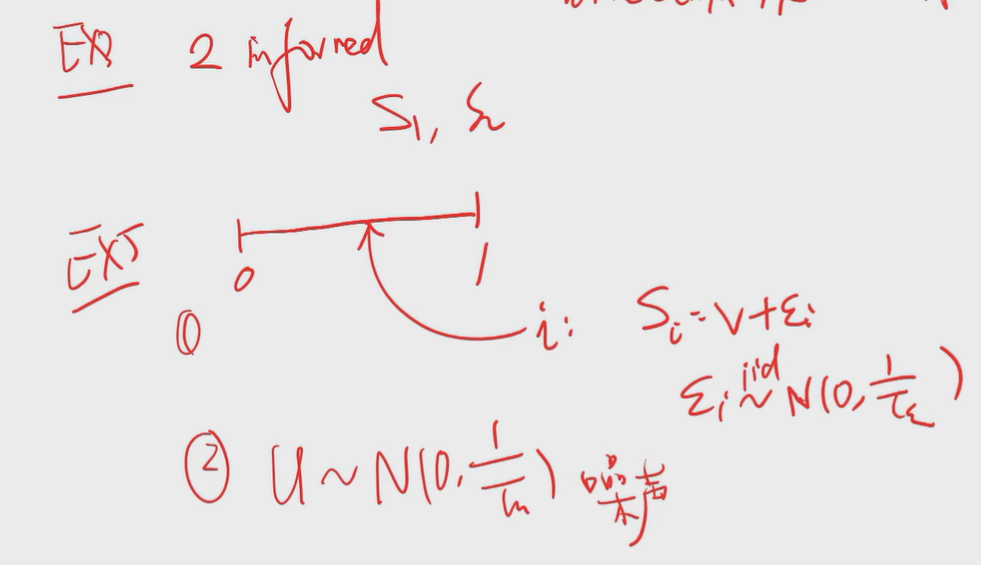 2 informed
S₁, S₂
EX5
0 1
① i: Sᵢ = V + εᵢ
εᵢ iid ~ N(0, 1/τ_ε)
② U ~ N(0, 1/τᵤ) 噪声